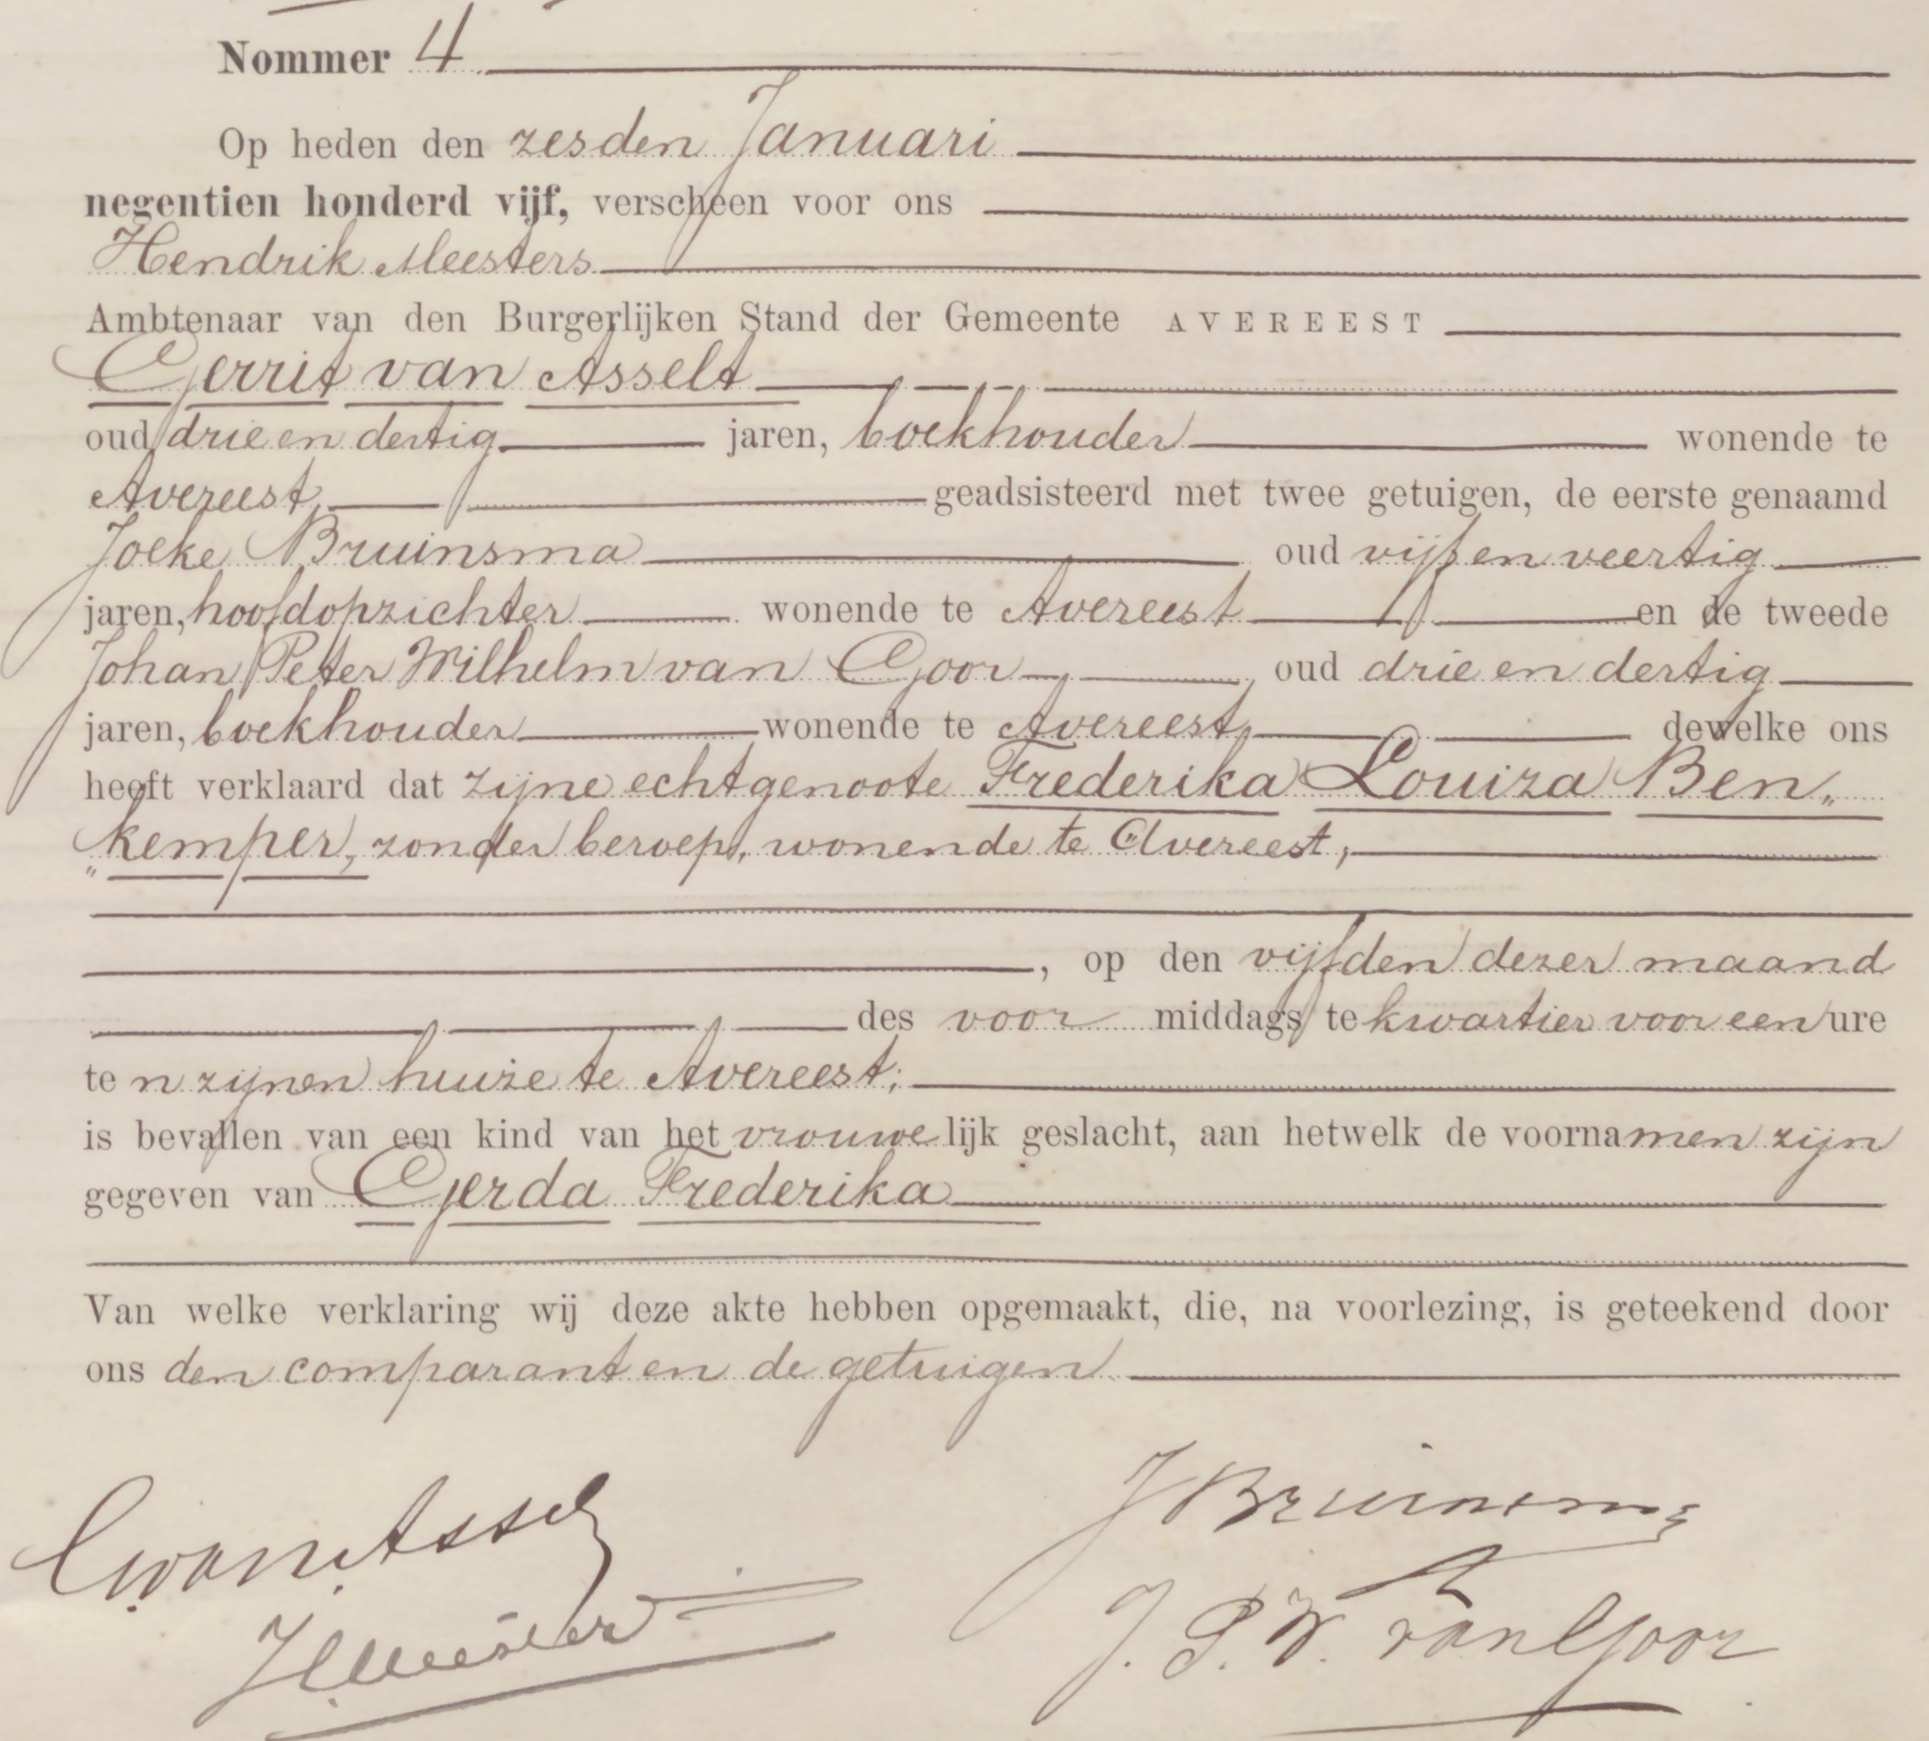 Nommer 4
Op heden den zesden Januari
negentien honderd vijf, verscheen voor ons
Hendrik Meesters
Ambtenaar van den Burgerlijken Stand der Gemeente AVEREEST
Gerrit van Asselt
oud drie en dertig jaren, boekhouder wonende te
Avereest, geadsisteerd met twee getuigen, de eerste genaamd
Joeke Bruinsma oud vijf en veertig
jaren, hoofdopzichter wonende te Avereest en de tweede
Johan Peter Wilhelm van Goor oud drie en dertig
jaren, boekhouder wonende te Avereest, dewelke ons
heeft verklaard dat zijne echtgenoote Frederika Louiza Ben„
„kemper, zonder beroep, wonende te Avereest,
, op den vijfden dezer maand
des voor middags te kwartier voor een ure
te n zijnen huize te Avereest;
is bevallen van een kind van het vrouwelijk geslacht, aan hetwelk de voornamen zijn
gegeven van Gerda Frederika
Van welke verklaring wij deze akte hebben opgemaakt, die, na voorlezing, is geteekend door
ons den comparant en de getuigen
G. van Asselt
J Bruinsma
HMeesters
J. P. W. van Goor